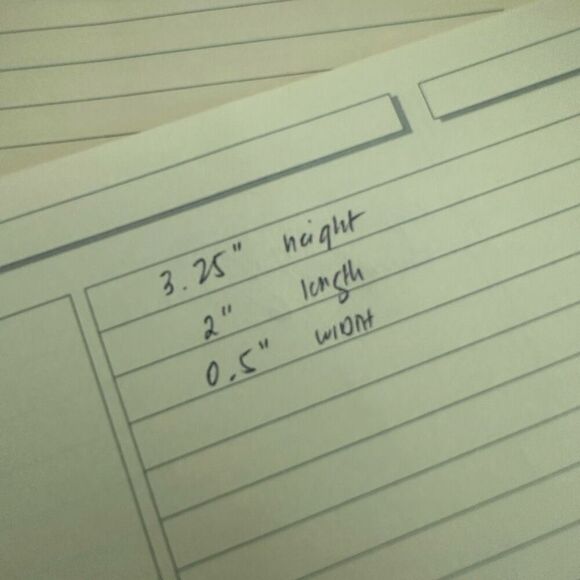 3.25" height
2" length
0.5" WIDTH